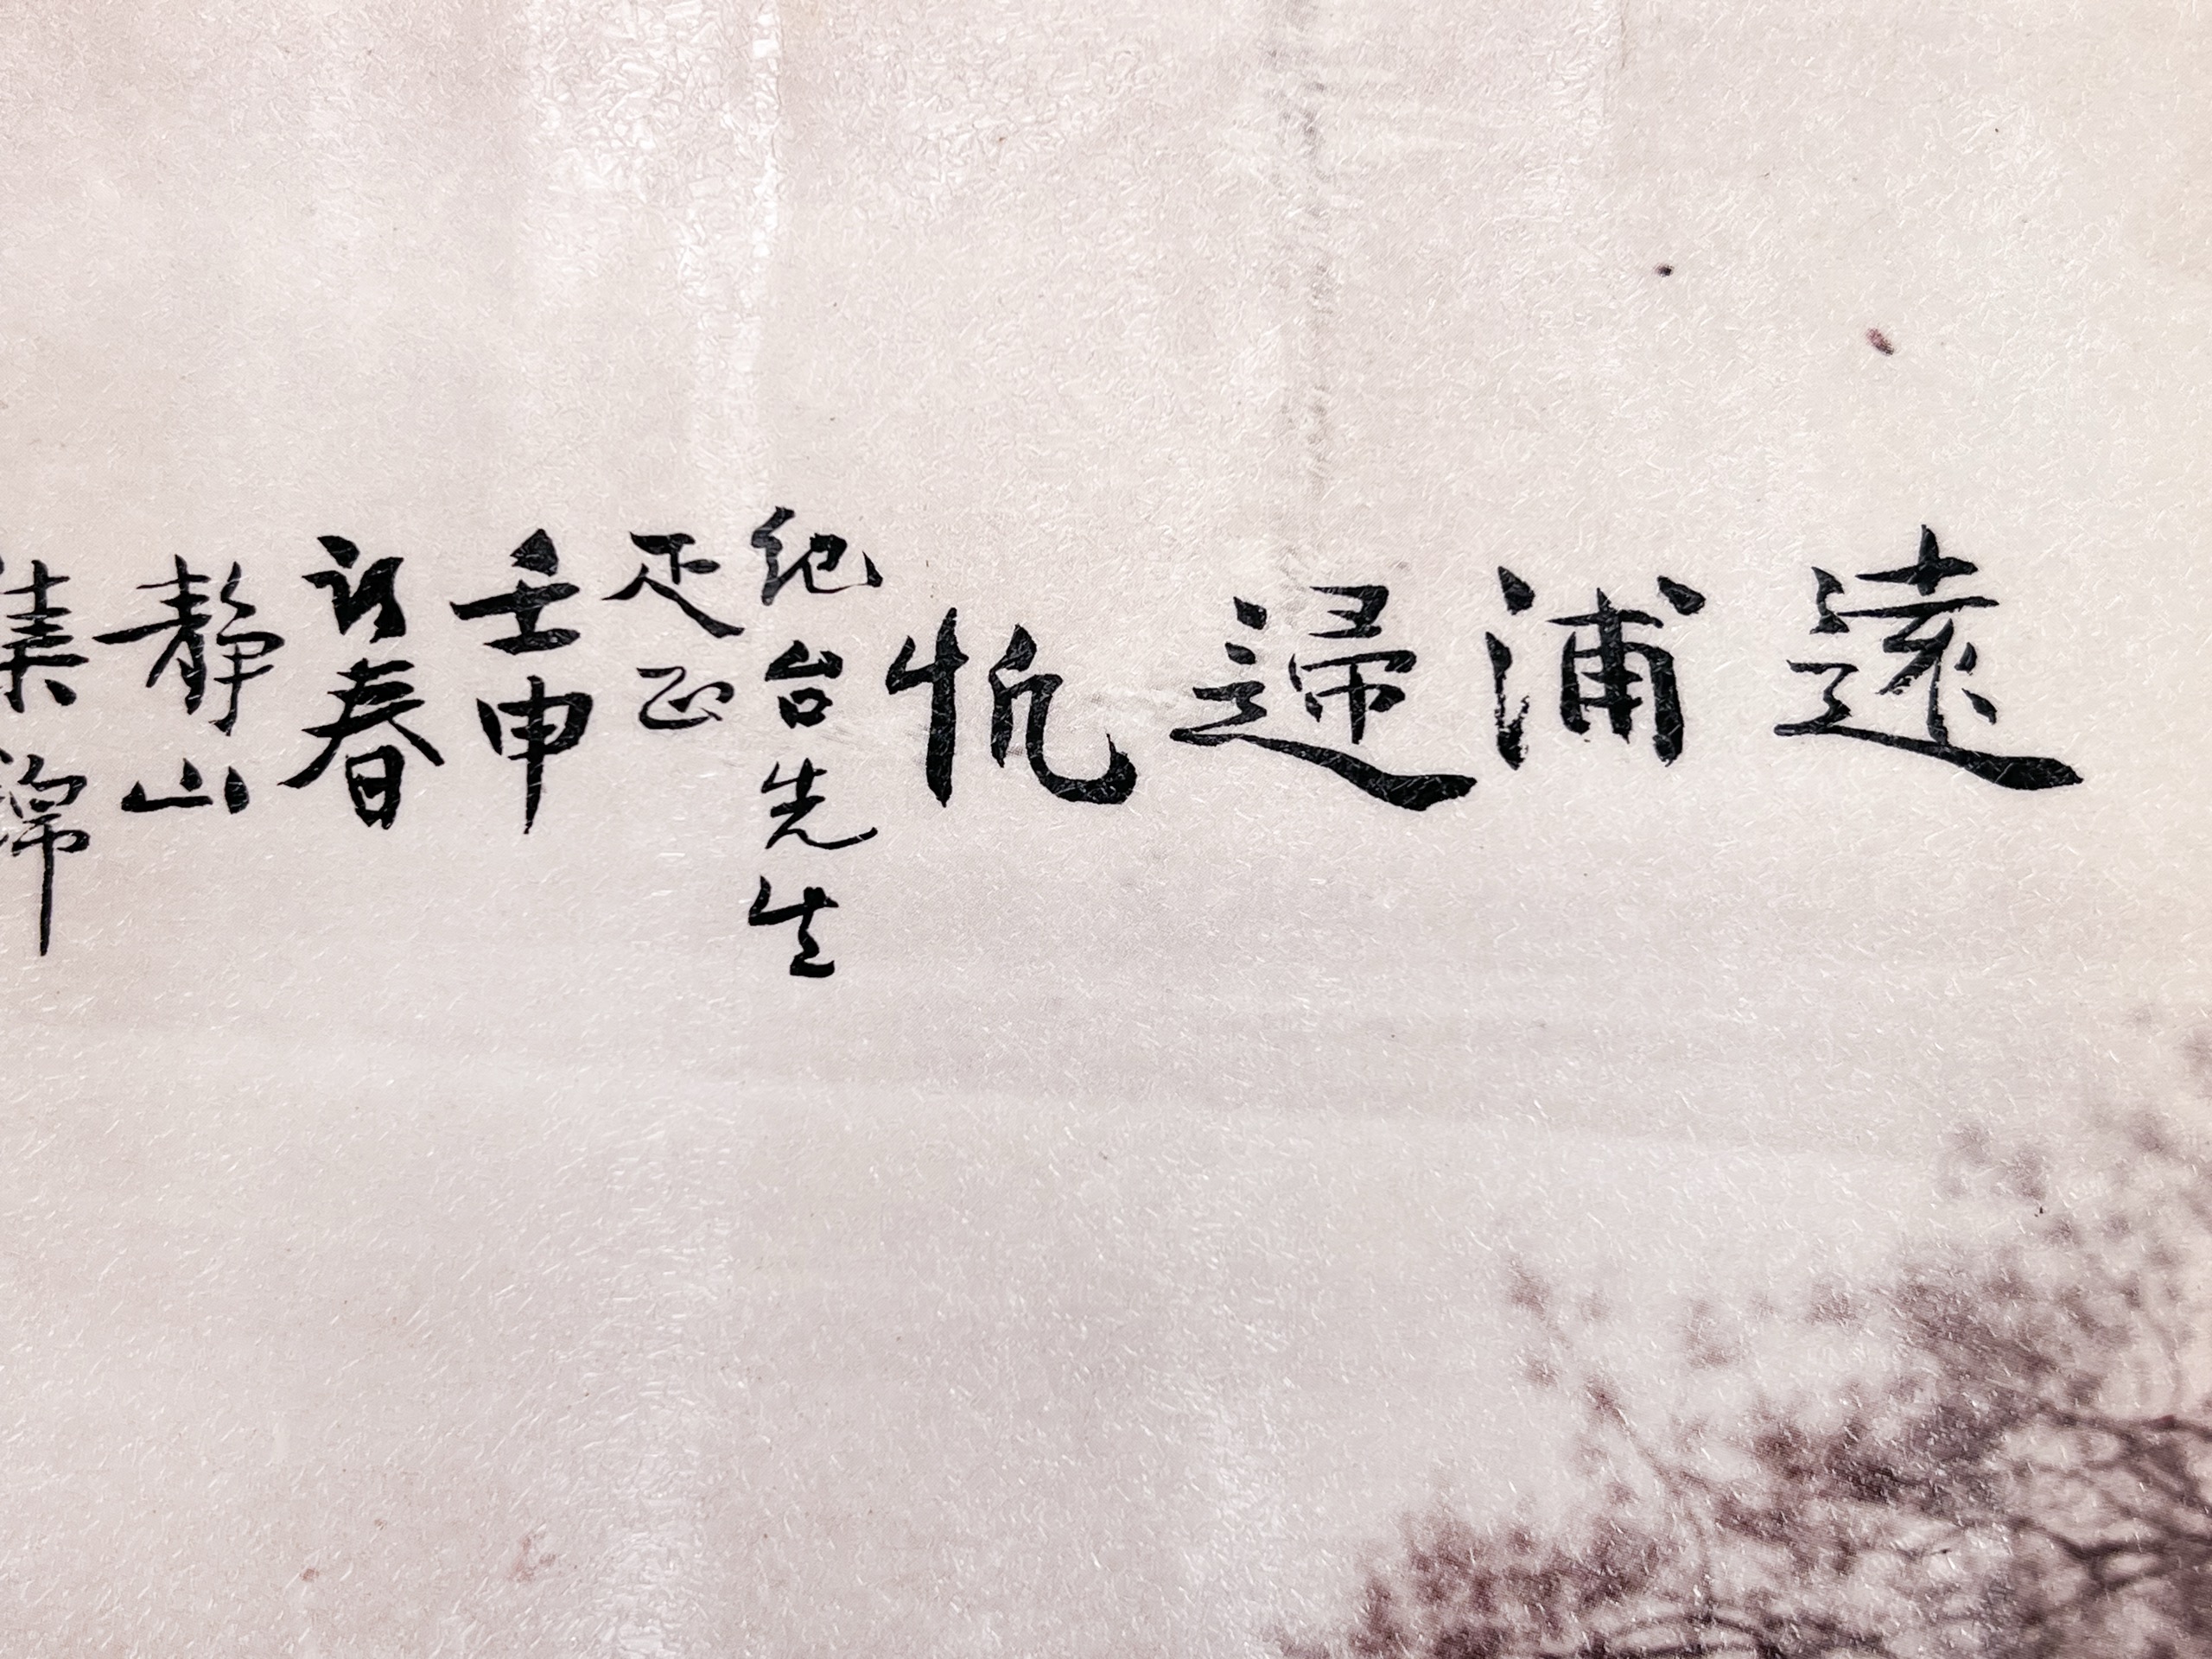 遠浦歸帆
紀台先生
疋正
壬申
初春
静山
集錦